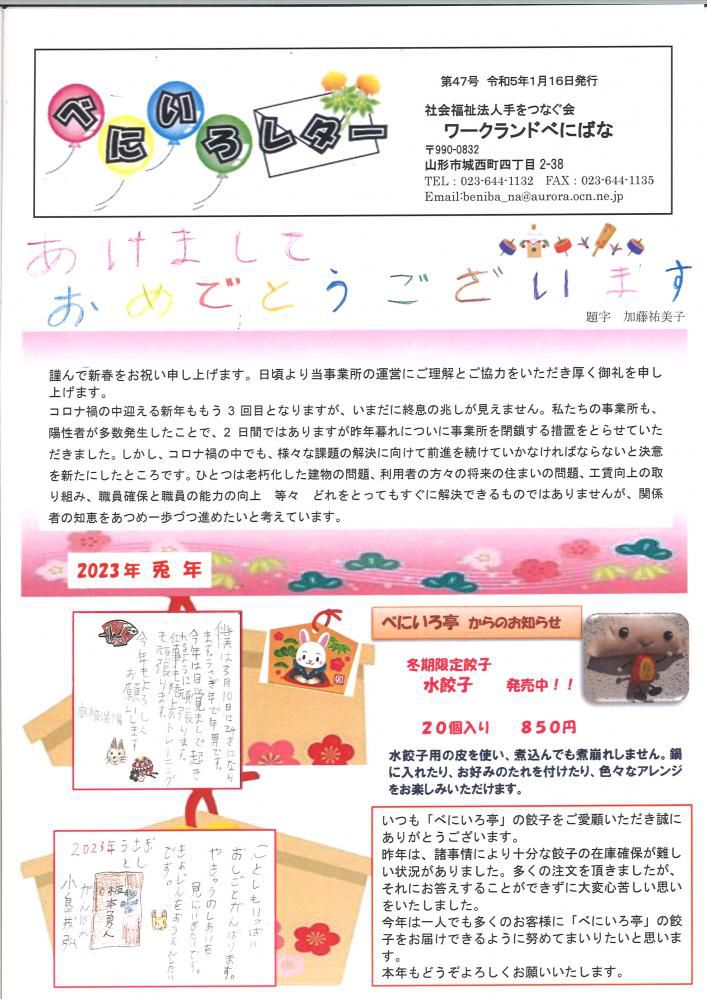 べにいろレター
第47号 令和5年1月16日発行
社会福祉法人手をつなぐ会
ワークランドべにばな
〒990-0832
山形市城西町四丁目 2-38
TEL：023-644-1132 FAX：023-644-1135
Email:beniba_na@aurora.ocn.ne.jp
あけまして
おめでとうございます
題字 加藤祐美子
謹んで新春をお祝い申し上げます。日頃より当事業所の運営にご理解とご協力をいただき厚く御礼を申し
上げます。
コロナ禍の中迎える新年ももう 3 回目となりますが、いまだに終息の兆しが見えません。私たちの事業所も、
陽性者が多数発生したことで、2 日間ではありますが昨年暮れについに事業所を閉鎖する措置をとらせていた
だきました。しかし、コロナ禍の中でも、様々な課題の解決に向けて前進を続けていかなければならないと決意
を新たにしたところです。ひとつは老朽化した建物の問題、利用者の方々の将来の住まいの問題、工賃向上の取
り組み、職員確保と職員の能力の向上 等々 どれをとってもすぐに解決できるものではありませんが、関係
者の知恵をあつめ一歩づつ進めたいと考えています。
2023年 兎 年
僕は3月10日に24才になり
ますうさぎ年で年男です。
今年は目覚ましで起き
れるように頑張ります。
仕事も陸上のトレーニング
も頑張ります。
今年もよろしく
お願いします
卯
べにいろ亭 からのお知らせ
冬期限定餃子
水餃子 発売中！！
２０個入り ８５０円
水餃子用の皮を使い、煮込んでも煮崩れしません。鍋
に入れたり、お好みのたれを付けたり、色々なアレンジ
をお楽しみいただけます。
ことしもいっぱい
おしごとがんばります。
やきゅうのしあいも
見にいきたいです。
きょじんをおうえんしたい
です。
2023年
うさぎ
とし
坂本勇人
がんばれ
いつも「べにいろ亭」の餃子をご愛顧いただき誠に
ありがとうございます。
昨年は、諸事情により十分な餃子の在庫確保が難し
い状況がありました。多くの注文を頂きましたが、
それにお答えすることができずに大変心苦しい思い
をいたしました。
今年は一人でも多くのお客様に「べにいろ亭」の餃
子をお届けできるように努めてまいりたいと思いま
す。
本年もどうぞよろしくお願いいたします。